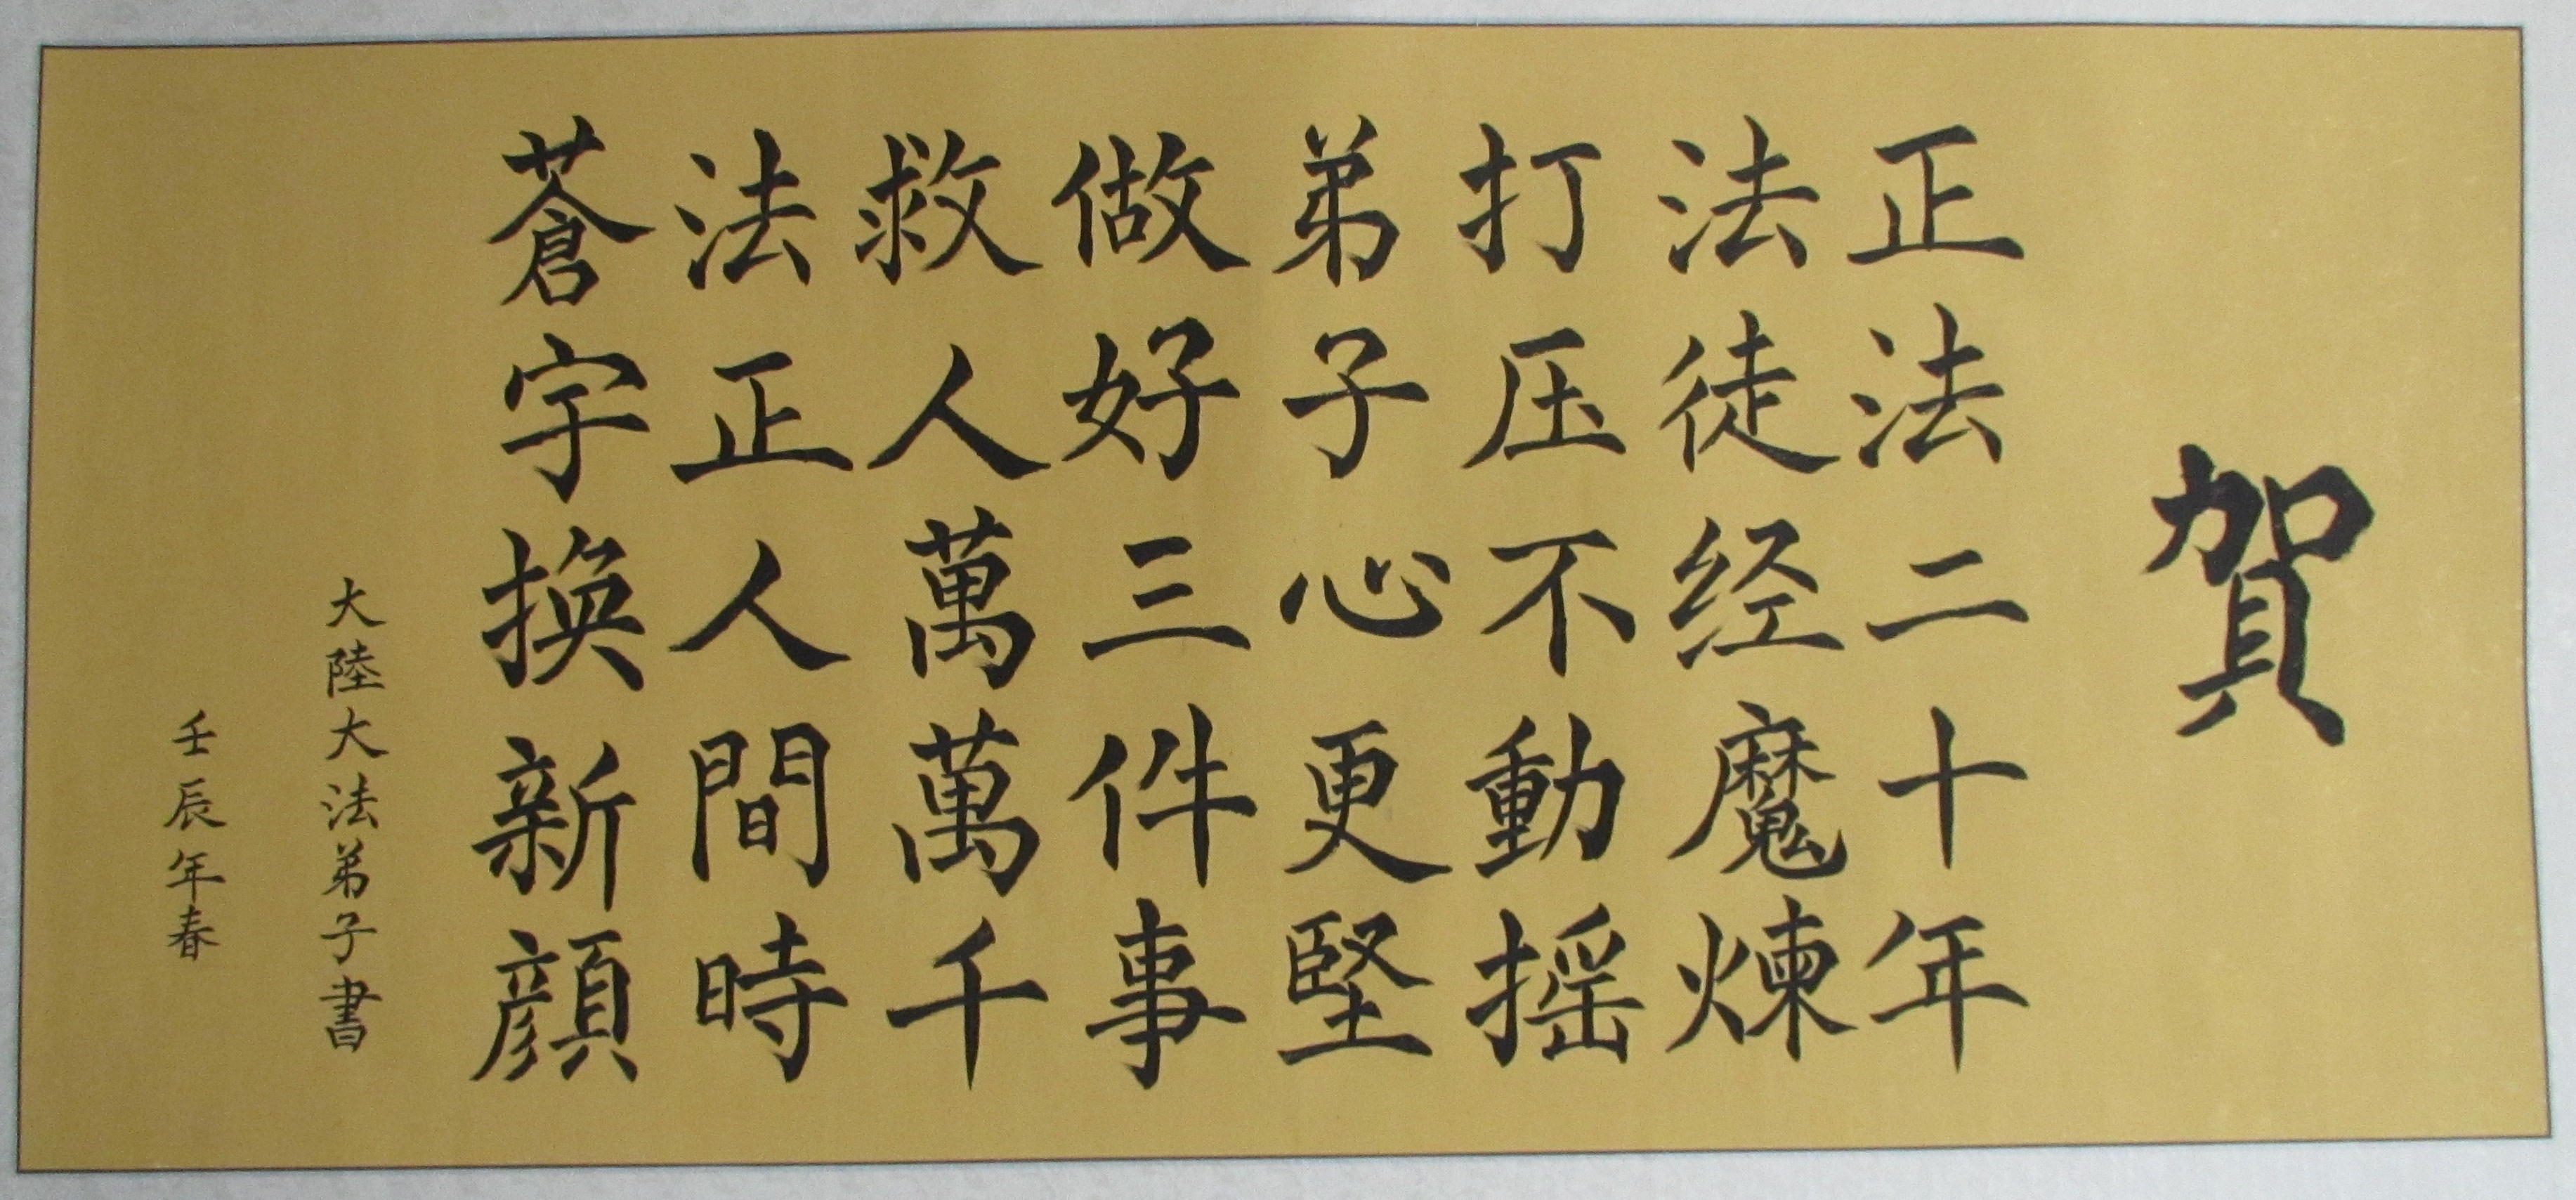 賀
正法二十年
法徒经魔煉
打压不動摇
弟子心更堅
做好三件事
救人萬萬千
法正人間時
蒼宇換新顔
大陸大法弟子書
壬辰年春